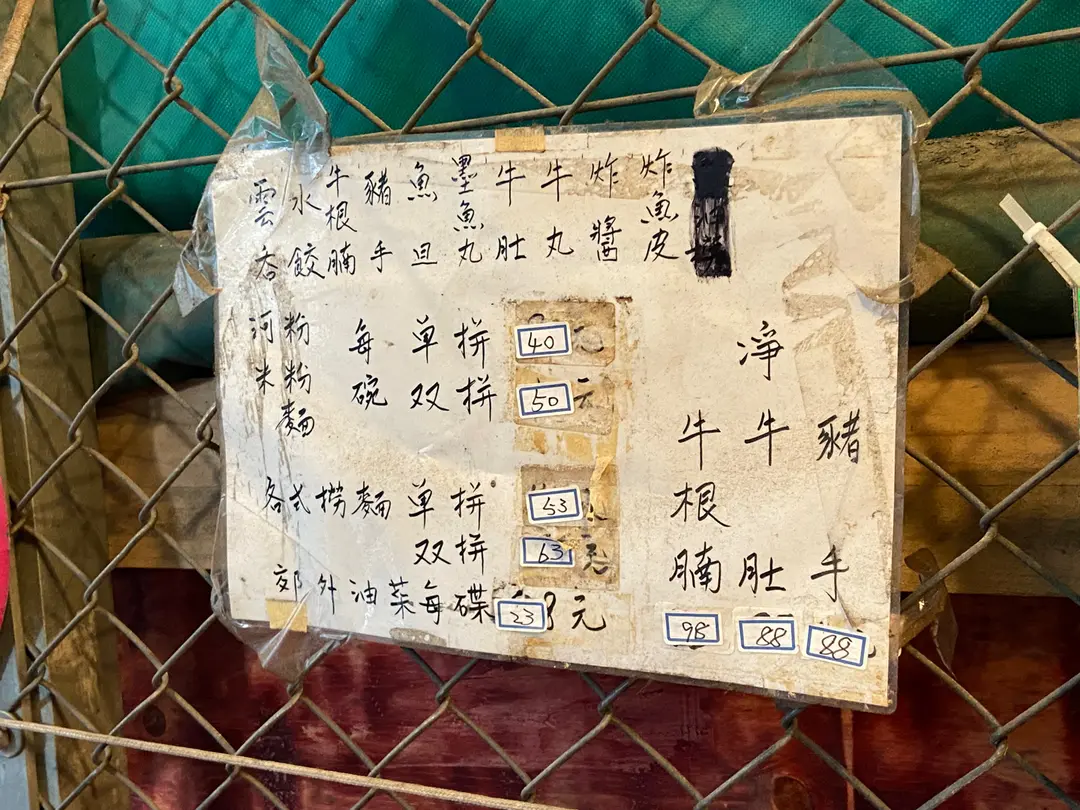 雲吞
水餃
牛根腩
豬手
魚旦
墨魚丸
牛肚
牛丸
炸醬
炸魚皮
河粉
米粉
麵
每碗
单拼 40元
双拼 50元
各式捞麵 单拼 53
双拼 63元
郊外油菜每碟 23元
淨
牛根腩 98
牛肚 88
豬手 88